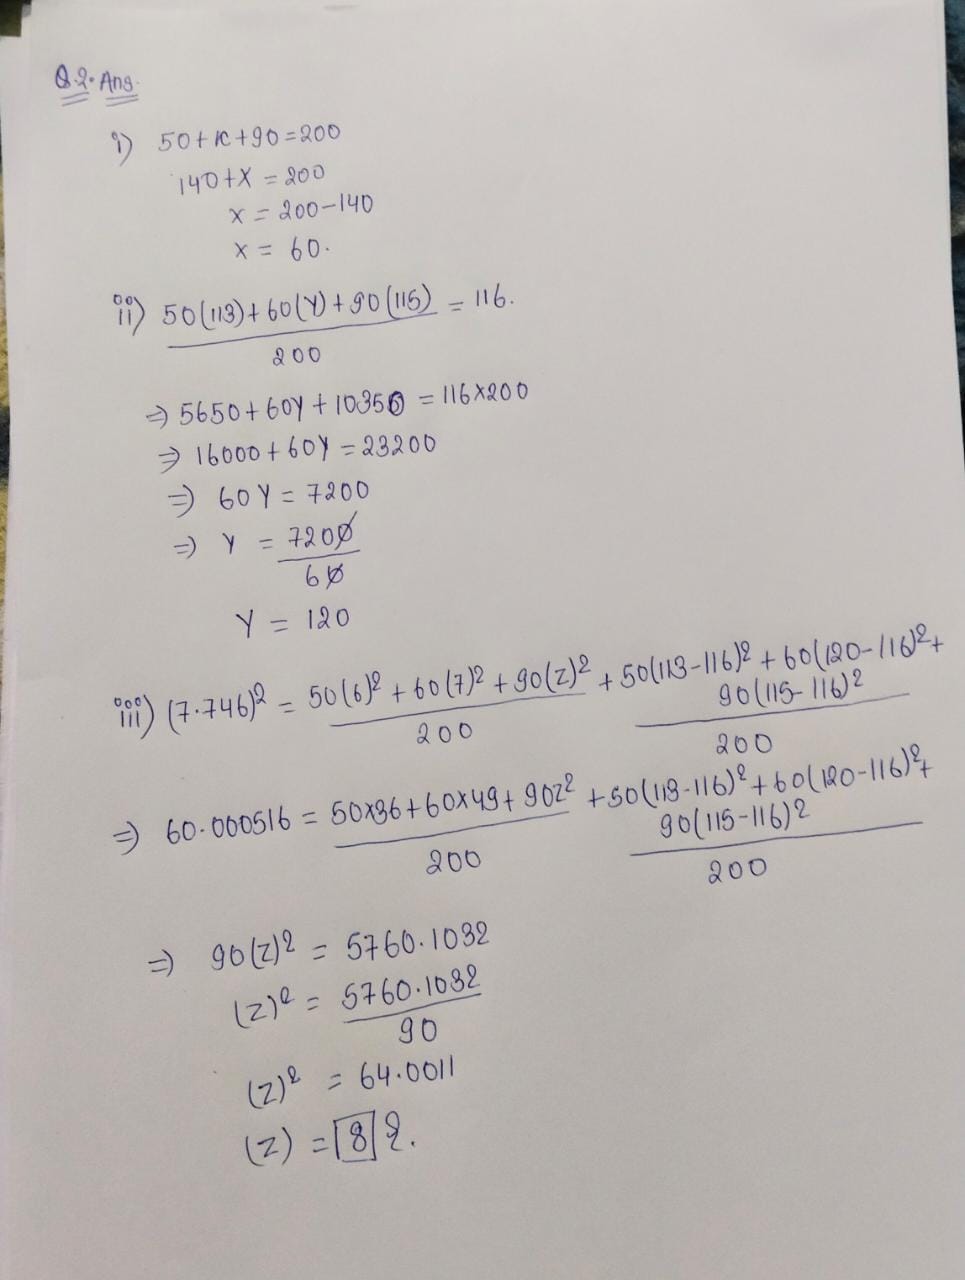 Q.2. Ans.
i) 50+x+90=200
140+X = 200
X = 200-140
X = 60.
ii) 50(113)+60(Y)+90(115) = 116.
200
⇒ 5650+60Y+10350 = 116×200
⇒ 16000+60Y = 23200
⇒ 60Y = 7200
⇒ Y = 7200
60
Y = 120
iii) (7.746)² = 50(6)²+60(7)²+90(z)² + 50(113-116)²+60(120-116)²+
90(115-116)²
200
200
⇒ 60.000516 = 50×36+60×49+90z² + 50(113-116)²+60(120-116)²+
90(115-116)²
200
200
⇒ 90(z)² = 5760.1032
(z)² = 5760.1032
90
(z)² = 64.0011
(z) = 8